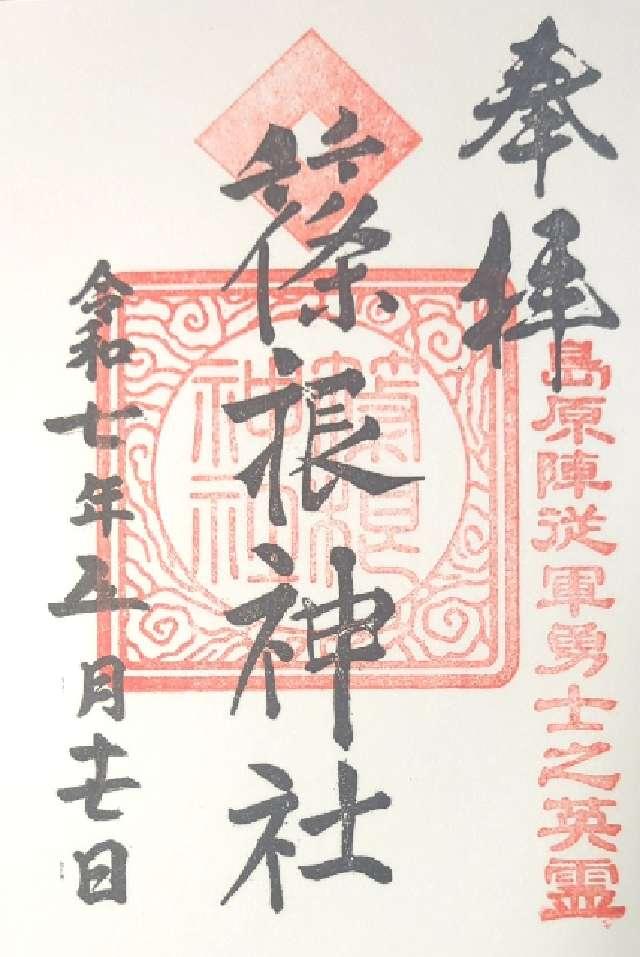 奉拝
島原陣従軍勇士之英霊
篠根神社
篠根神社
令和七年五月十七日